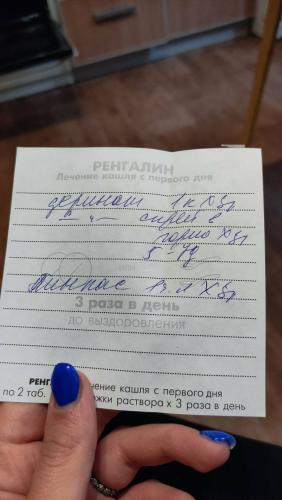 РЕНГАЛИН
Лечение кашля с первого дня
деринат 1к х 3р
—"— спрей в
горло х 3р
5-7д
Линкас 1ч.л х 3р
или
3 раза в день
до выздоровления
РЕНГ чение кашля с первого дня
по 2 таб. ожки раствора х 3 раза в день